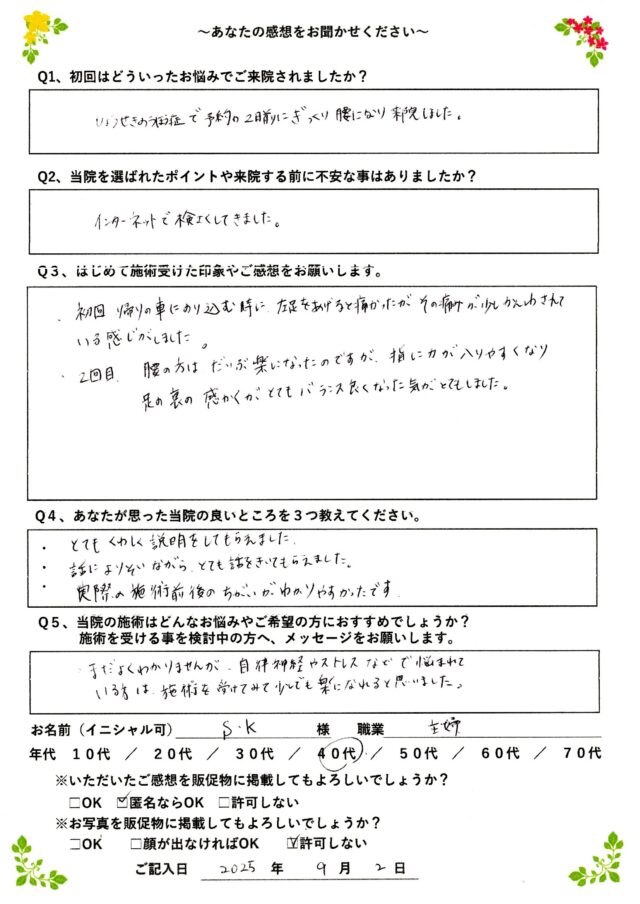 ～あなたの感想をお聞かせください～
Q1、初回はどういったお悩みでご来院されましたか？
で予約の2日前にぎっくり腰になり来院しました。
Q2、当院を選ばれたポイントや来院する前に不安な事はありましたか？
インターネットで検さくしてきました。
Q３、はじめて施術受けた印象やご感想をお願いします。
・初回 帰りの車にのり込む時に、左足をあげると痛かったが その痛みが少しかんわされて
いる感じがしました。
・2回目、腰の方は だいぶ楽になったのですが、指に力が入りやすくなり
足の裏の 感かくが とても バランス良くなった気がとてもしました。
Q４、あなたが思った当院の良いところを３つ教えてください。
・とても くわしく 説明をしてもらえました。
・話によりそいながら、とても話をきいてもらえました。
・実際の施術前後のちがいがわかりやすかったです。
Q５、当院の施術はどんなお悩みやご希望の方におすすめでしょうか？
施術を受ける事を検討中の方へ、メッセージをお願いします。
・まだよくわかりませんが、自律神経やストレスなどで悩まれて
いる方は、施術を受けてみて少しでも楽になれると思いました。
お名前（イニシャル可） S.K 様 職業 主婦
年代 １０代 ／ ２０代 ／ ３０代 ／ ４０代 ／ ５０代 ／ ６０代 ／ ７０代
※いただいたご感想を販促物に掲載してもよろしいでしょうか？
□OK ☑匿名ならOK □許可しない
※お写真を販促物に掲載してもよろしいでしょうか？
□OK □顔が出なければOK ☑許可しない
ご記入日 2025 年 9 月 2 日